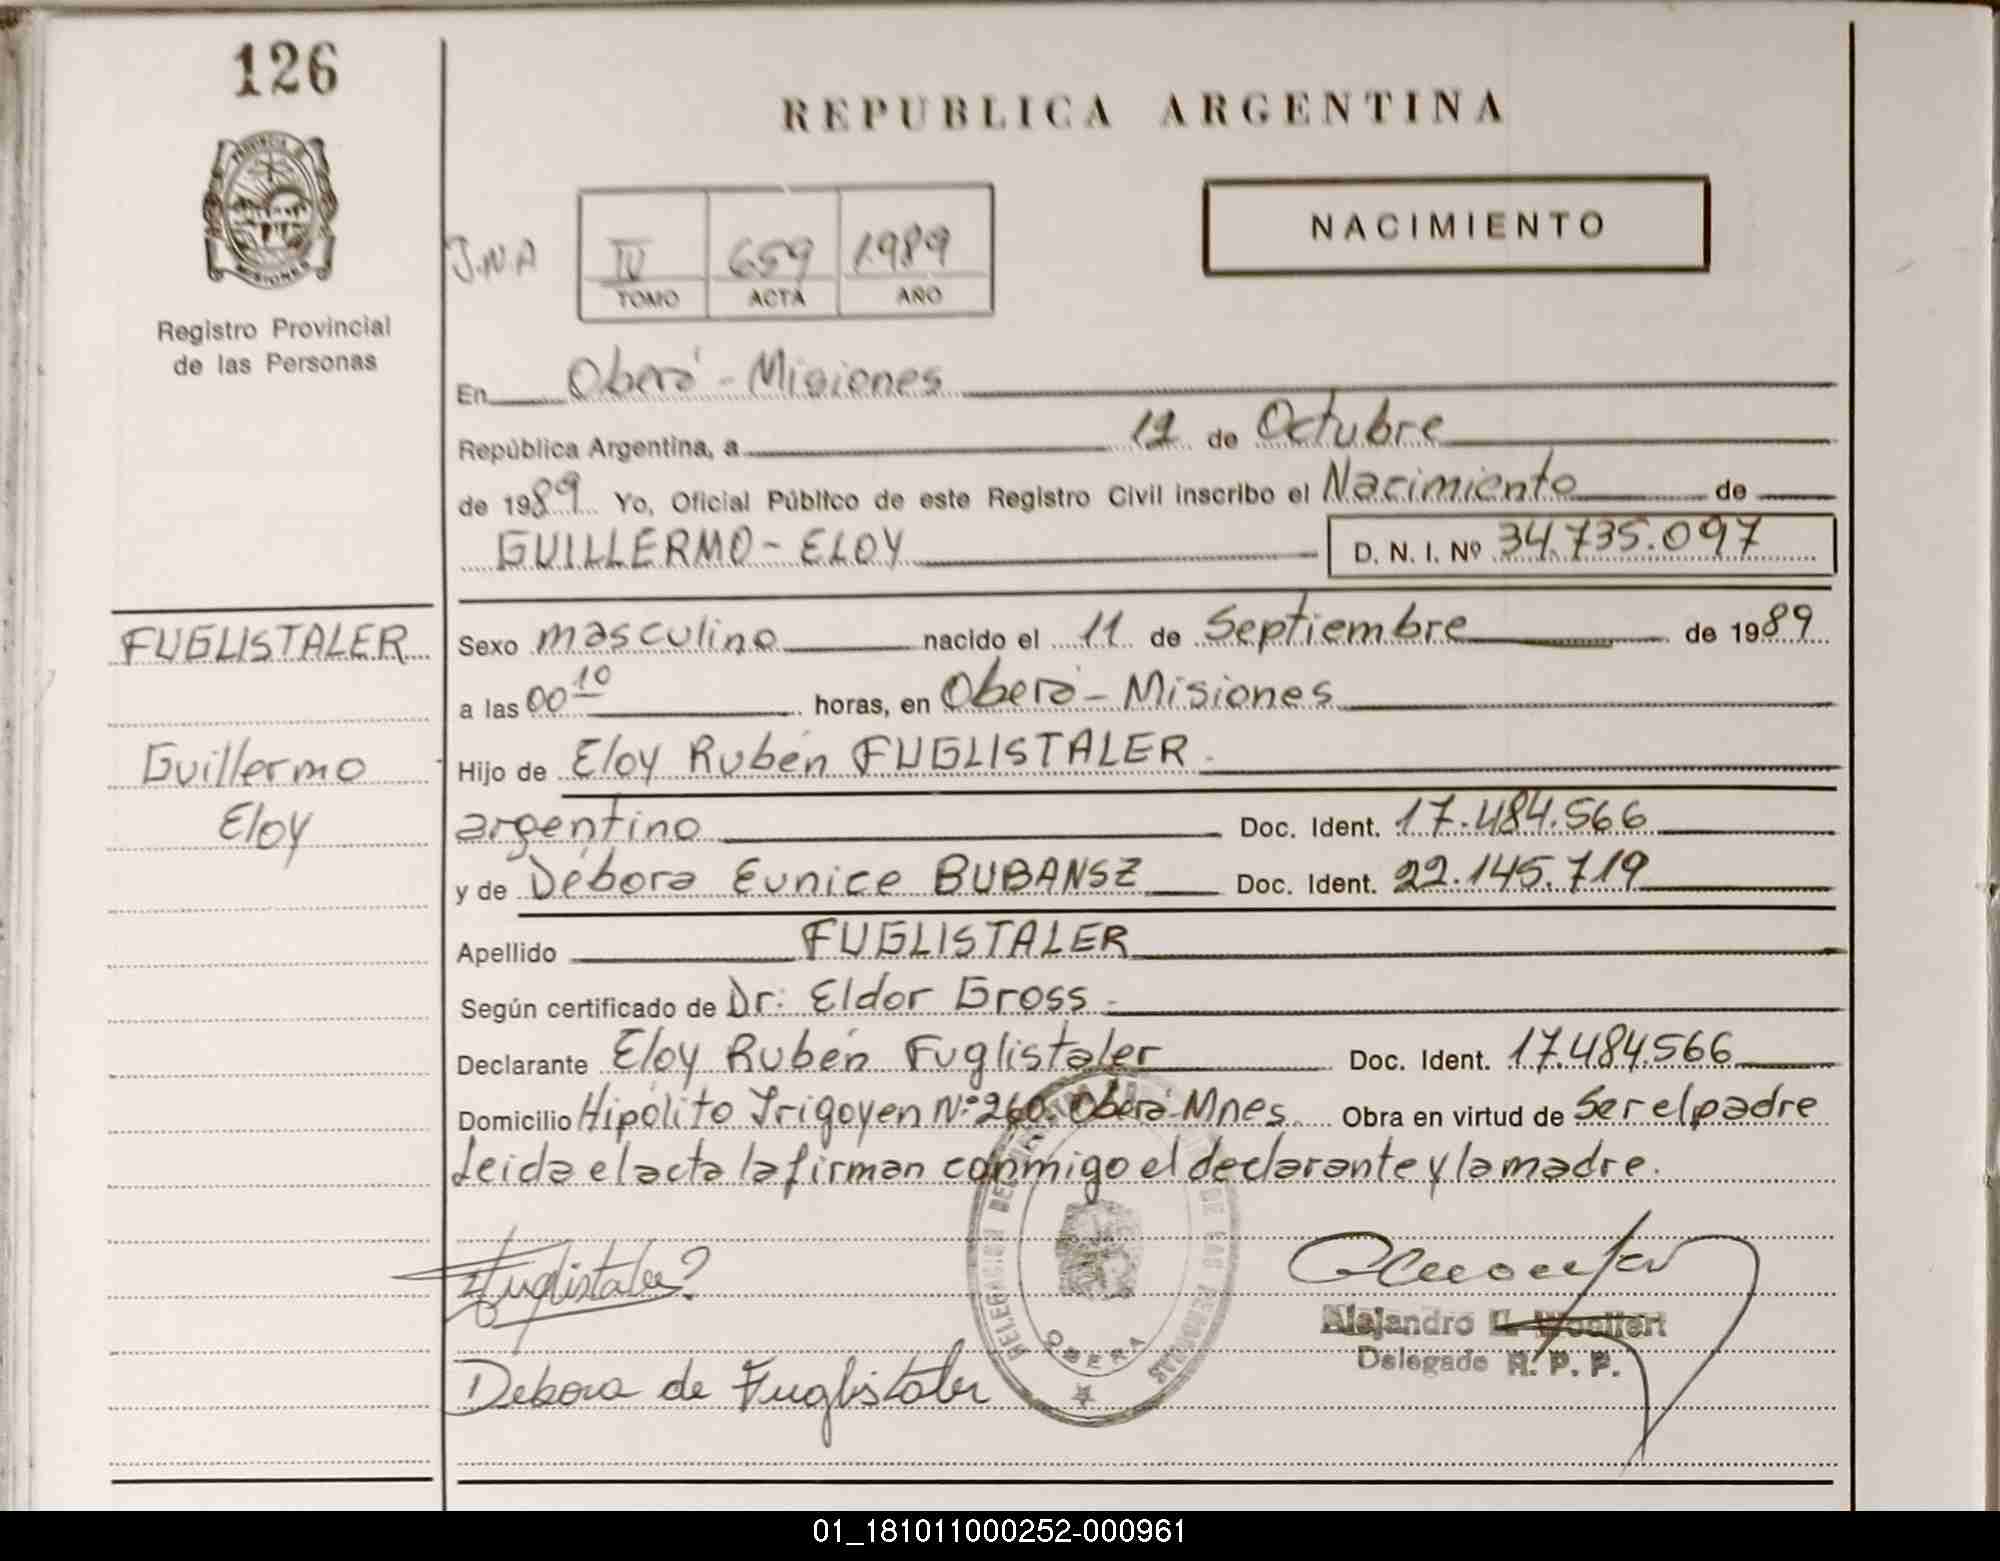 126
REPUBLICA ARGENTINA
PROVINCIA DE
MISIONES
NACIMIENTO
J.N.A
IV 659 1989
TOMO ACTA AÑO
Registro Provincial
de las Personas
En Oberá - Misiones
República Argentina, a 12 de Octubre
de 1989 Yo, Oficial Público de este Registro Civil inscribo el Nacimiento de
GUILLERMO - ELOY D. N. I. Nº 34.735.097
FUGLISTALER
Guillermo
Eloy
Sexo masculino nacido el 11 de Septiembre de 1989
a las 00 10 horas, en Oberá - Misiones
Hijo de Eloy Rubén FUGLISTALER
argentino Doc. Ident. 17.484.566
y de Débora Eunice BUBANSZ Doc. Ident. 22.145.719
Apellido FUGLISTALER
Según certificado de Dr. Eldor Gross
Declarante Eloy Rubén Fuglistaler Doc. Ident. 17.484.566
Domicilio Hipólito Irigoyen Nº 260. Oberá - Mnes. Obra en virtud de Ser el padre
Leida el acta la firman conmigo el declarante y la madre.
Fuglistaler
DELEGACION DE LAS PERSONAS
OBERA
Alejandro
Delegado R. P. P.
Debora de Fuglistaler
01_181011000252-000961